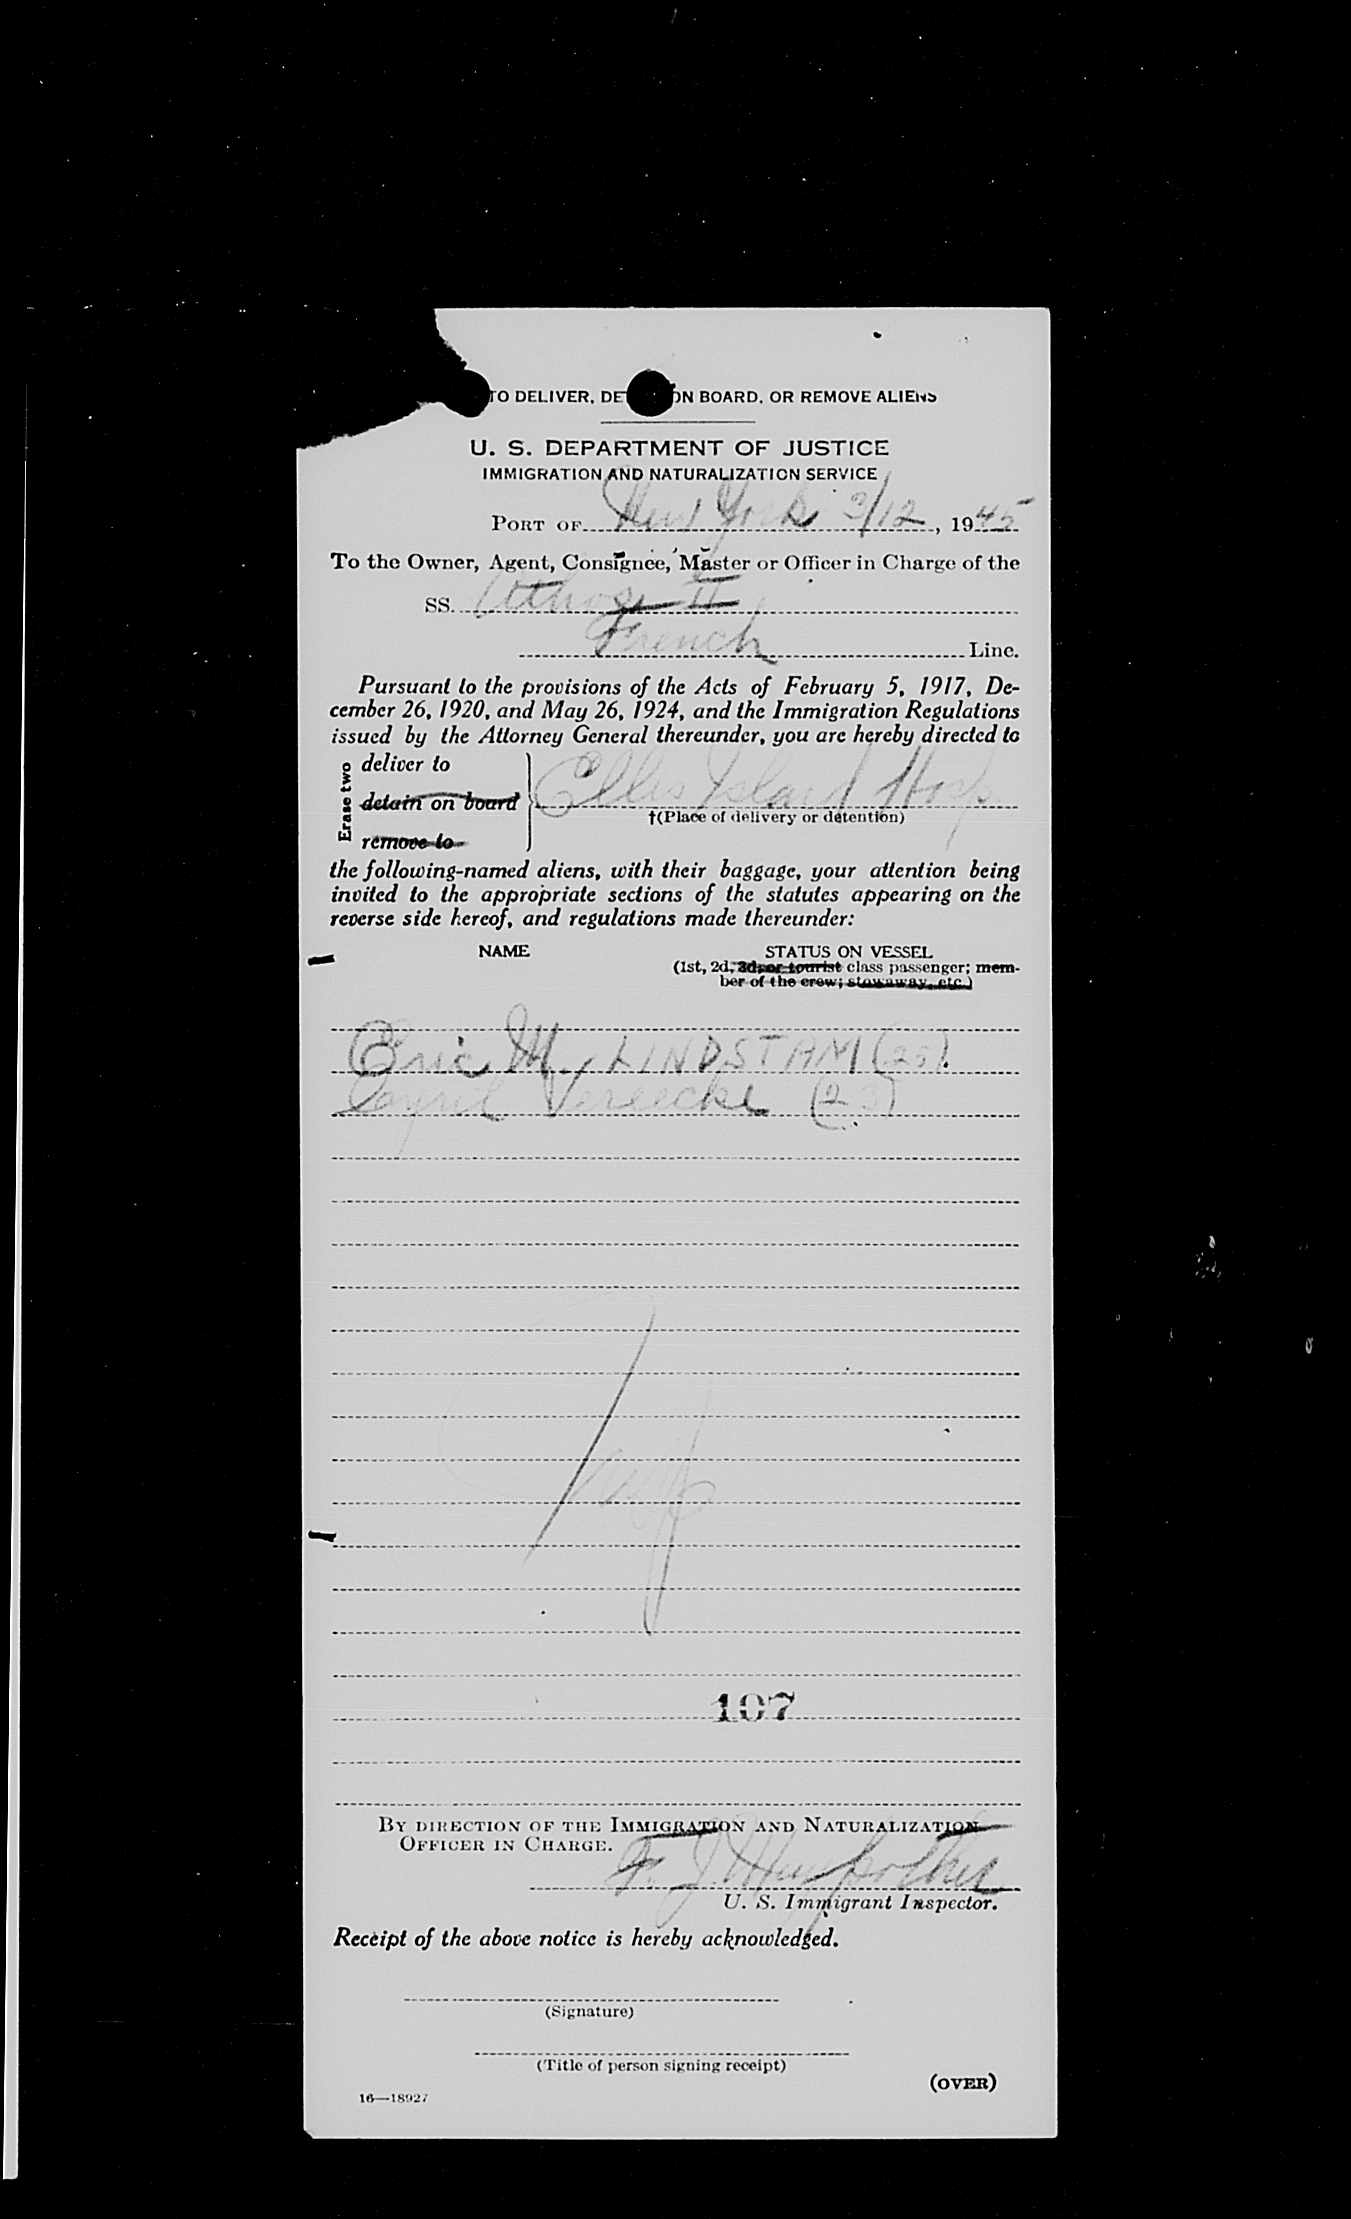 TO DELIVER, DE ON BOARD, OR REMOVE ALIENS
U. S. DEPARTMENT OF JUSTICE
IMMIGRATION AND NATURALIZATION SERVICE
PORT OF New York 3/12, 1945
To the Owner, Agent, Consignee, Master or Officer in Charge of the
SS. Athos II
French Line.
Pursuant to the provisions of the Acts of February 5, 1917, De-
cember 26, 1920, and May 26, 1924, and the Immigration Regulations
issued by the Attorney General thereunder, you are hereby directed to
Erase two
deliver to
detain on board
remove to
Ellis Island Hosp
†(Place of delivery or detention)
the following-named aliens, with their baggage, your attention being
invited to the appropriate sections of the statutes appearing on the
reverse side hereof, and regulations made thereunder:
NAME STATUS ON VESSEL
(1st, 2d, 3d, or tourist class passenger; mem-
ber of the crew; stowaway, etc.)
Eric M. LINDSTAM (25).
Cyril Vereecke (23)
107
BY DIRECTION OF THE IMMIGRATION AND NATURALIZATION
OFFICER IN CHARGE.
F. J.
U. S. Immigrant Inspector.
Receipt of the above notice is hereby acknowledged.
(Signature)
(Title of person signing receipt)
(OVER)
16—18927